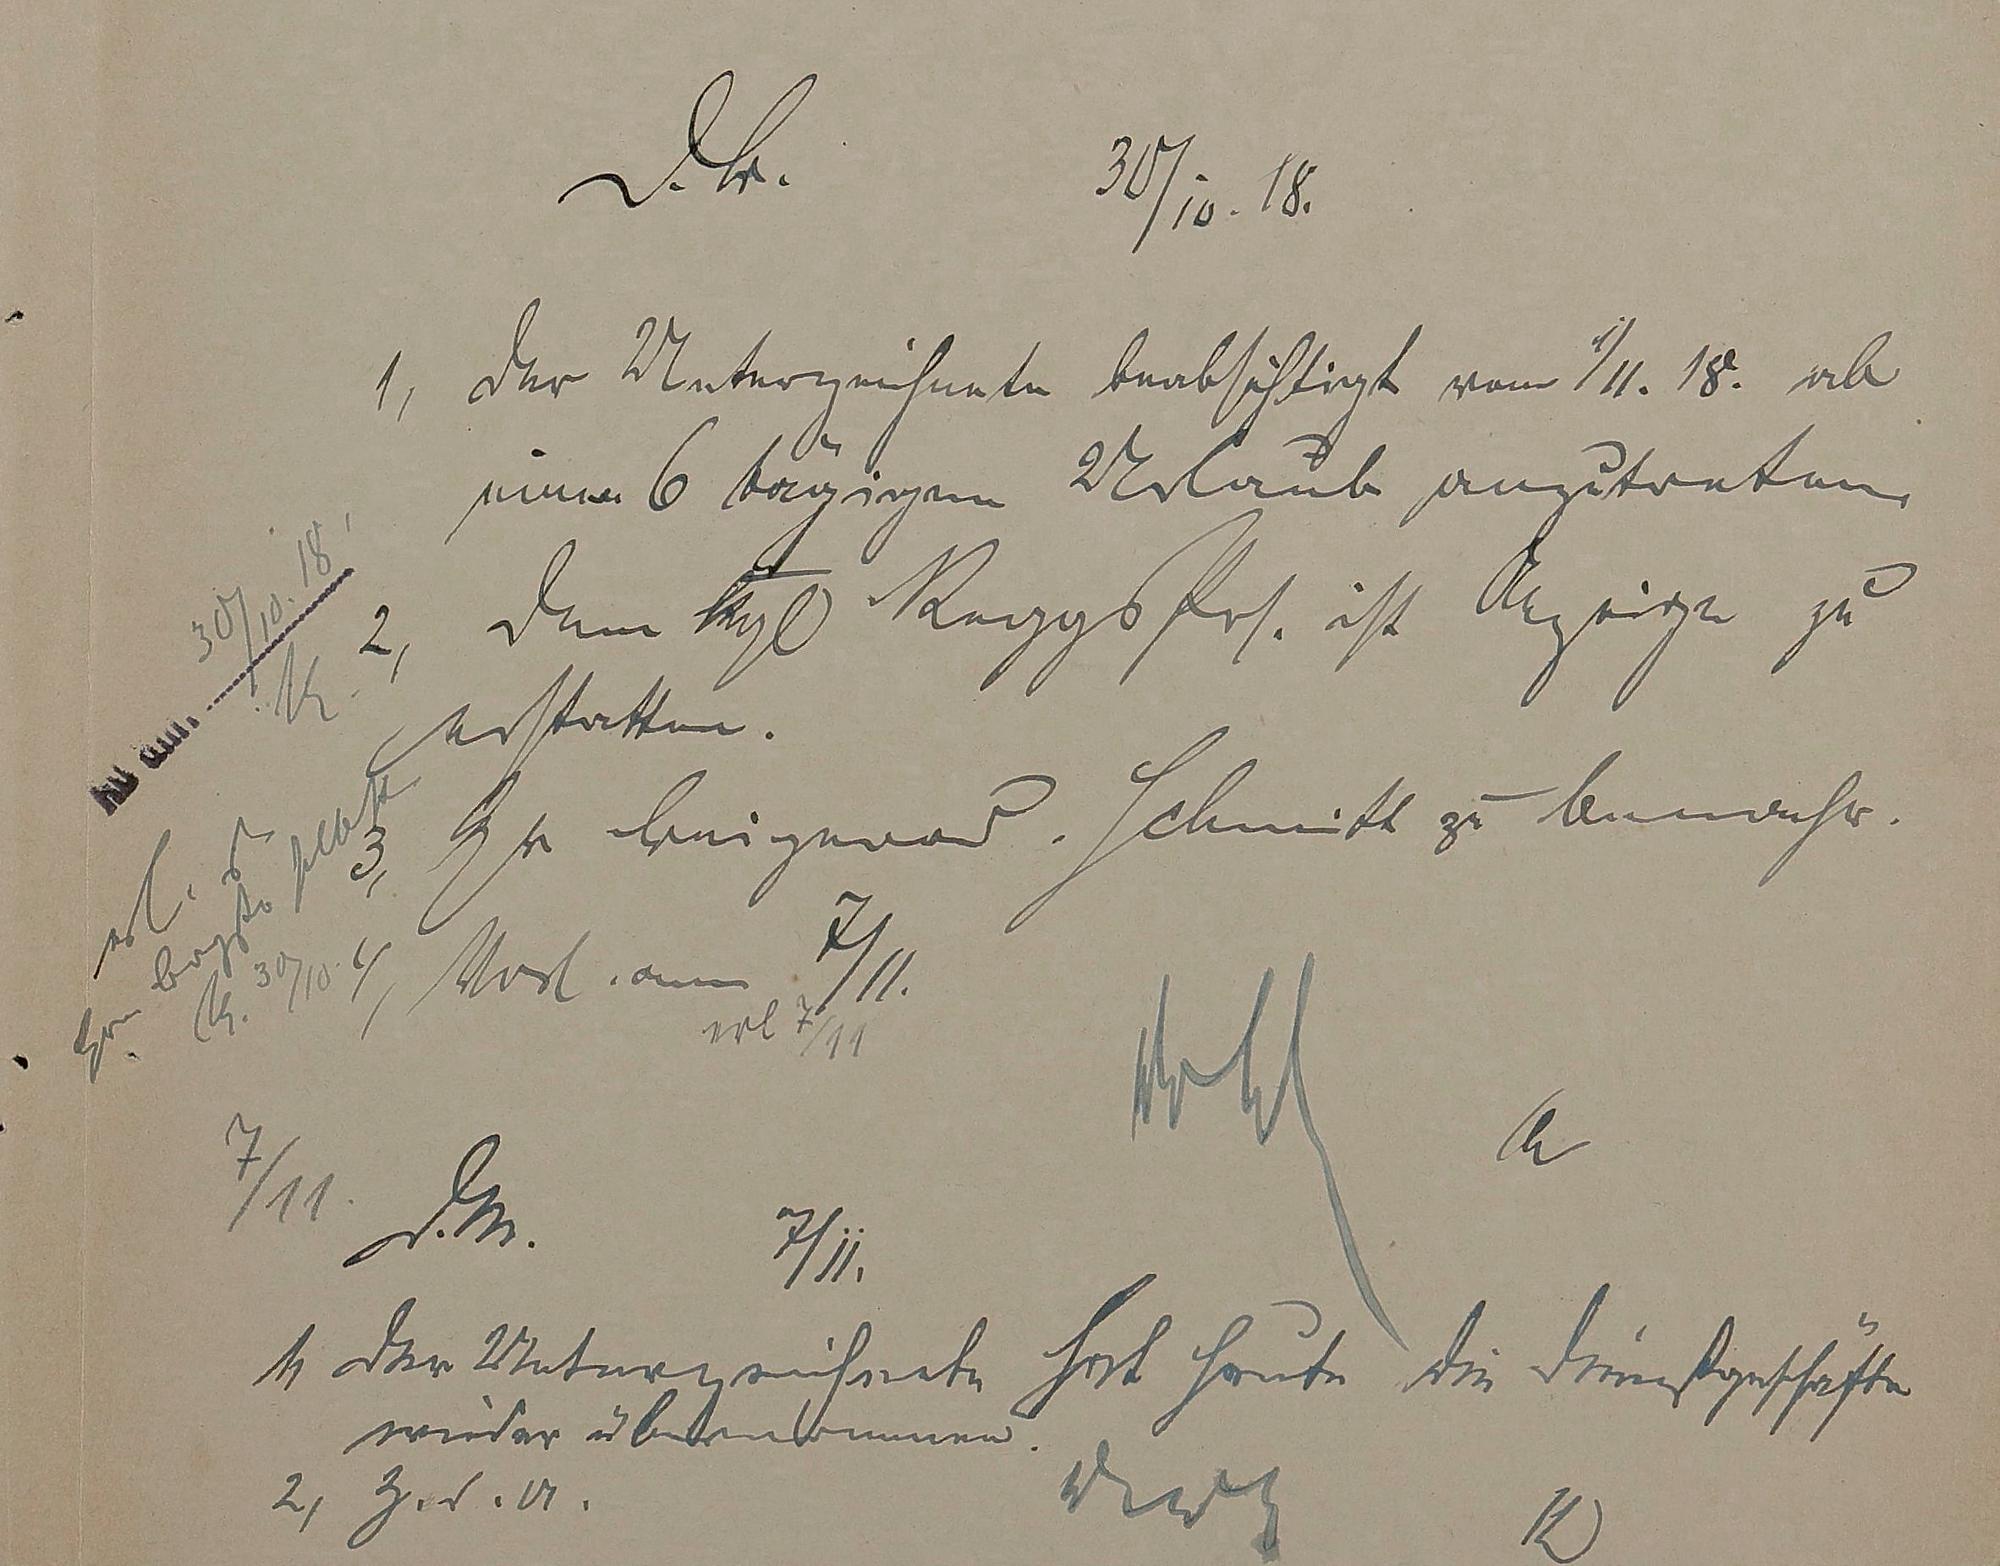 D. B. 30/10. 18.
1, Der Unterzeichnete beabsichtigt vom 1/11. 18. ab
einen 6 tägigen Urlaub anzutreten.
2, Dem Kgl RegsPrs. ist Anzeige zu
erstatten.
30/10. 18.
K.
am
3, H Beigeord. Schmitt zu
erl. d
selbst
K. 30/10.
4, Vorl. am 7/11.
erl 7/11
7/11.
D. B. 7/11.
1, Der Unterzeichnete hat heute die Dienstgeschäfte
wieder übernommen.
2, Z. d. A.
K